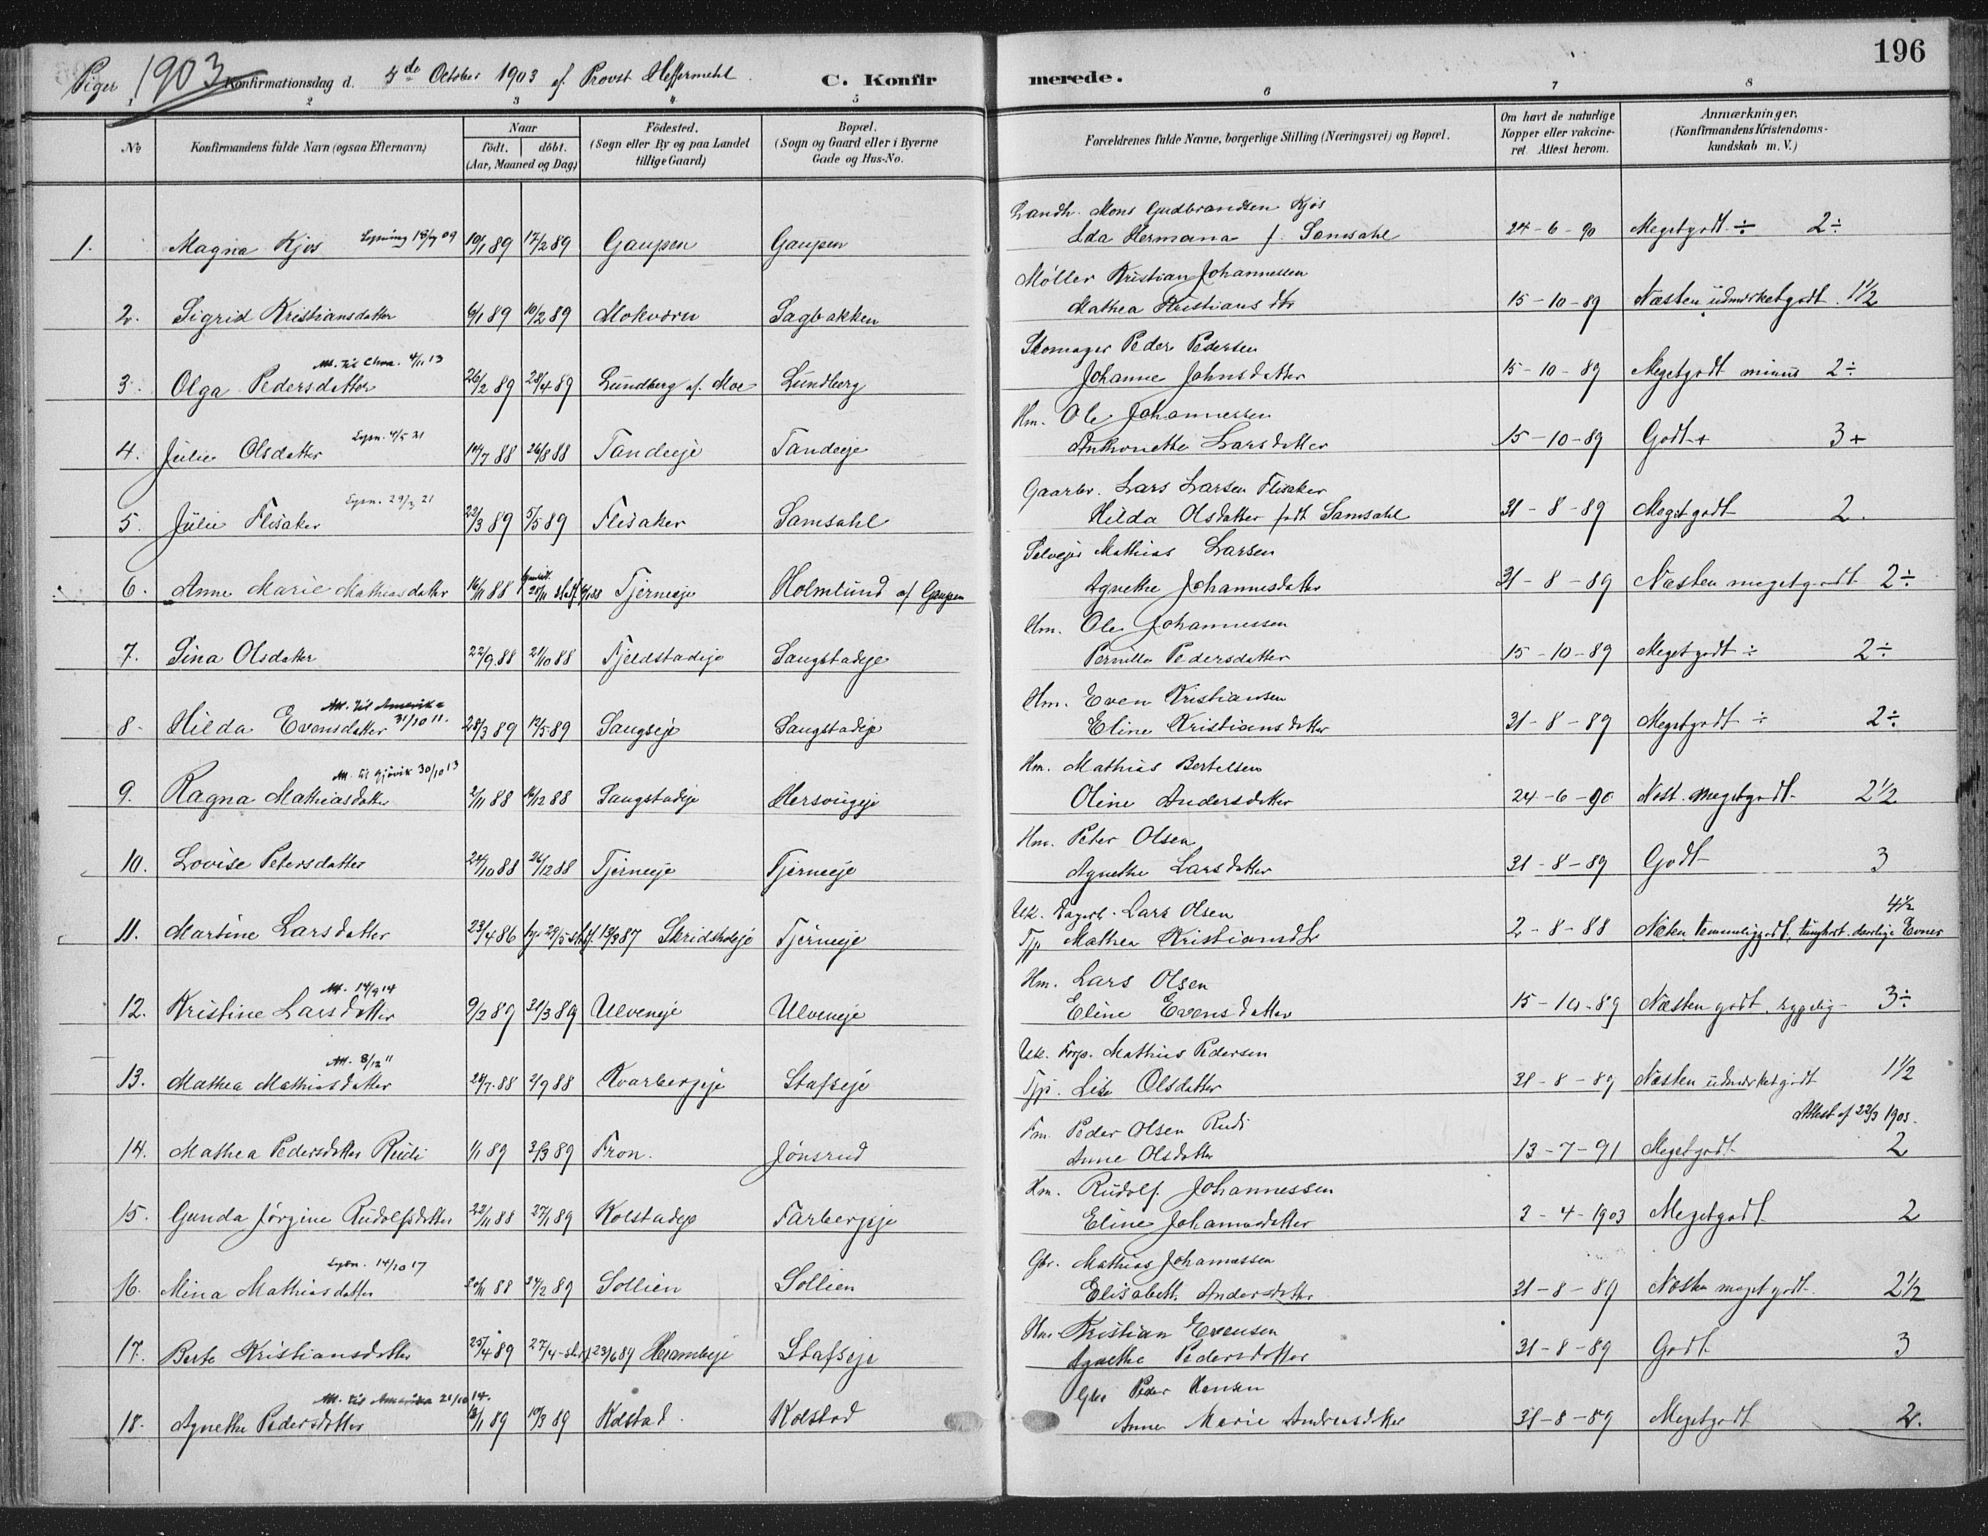 196
Piger 1903 Konfirmationsdag d. 4de October 1903 af Provst Heffermehl. C. Konfirmerede.
1 2 3 4 5 6 7 8
No Konfirmandens fulde Navn (ogsaa Efternavn) Naar født. døbt. (Aar, Maaned og Dag) Fødested. (Sogn eller By og paa Landet tillige Gaard) Bopæl. (Sogn og Gaard eller i Byerne Gade og Hus-No. Forældrenes fulde Navne, borgerlige Stilling (Næringsvei) og Bopæl. Om havt de naturlige Kopper eller vakcineret Attest herom. Anmærkninger. (Konfirmandens Kristendomskundskab m. V.)
Landh. Mons Gudbrandsen Kjos
1. Magna Kjos Lysning 18/9 09 10/1 89 17/2 89 Gaupen Gaupen Ida Hermana f. Samsahl 24-6-90 Megetgodt ÷ 2÷
Møller Kristian Johannessen
2. Sigrid Kristiansdatter 6/1 89 10/2 89 Mokværn Sagbakken Mathea Kristiansdtr 15-10-89 Næsten udmærketgodt. 1 1/2
Att. til Chra. 4/11 13 Skomager Peder Pedersen
3. Olga Pedersdatter 26/2 89 28/4 89 Lundberg af Moe Lundberg Johanne Johnsdatter 15-10-89 Megetgodt minus 2÷
Lysn. 4/5 21 Hm. Ole Johannessen
4. Julie Olsdatter 14/7 88 26/8 88 Tandeeje Tandeeje Antonette Larsdatter 15-10-89 Godt+ 3+
Lysn. 29/3 21 Gaarbr. Lars Larsen Flisaker
5. Julie Flisaker 22/3 89 5/5 89 Flisaker Samsahl Hilda Olsdatter født Samsahl 31-8-89 Megetgodt 2.
Selvejer Mathias Larsen
6. Anne Marie Mathiasdatter 16/11 88 Tjerneeje Holmlund af Gaupen Agnethe Johannesdatter 31-8-89 Næsten megetgodt 2÷
Hm. Ole Johannessen
7. Sina Olsdatter 22/9 88 21/10 88 Fjeldstadeje Saugstadeje Pernille Pedersdatter 15-10-89 Megetgodt ÷ 2÷
Att. til Amerika 31/10 11. Hm. Even Kristiansen
8. Hilda Evensdatter 28/3 89 12/5 89 Saugseje Saugstadeje Eline Kristiansdatter 31-8-89 Megetgodt ÷ 2÷
Att. til Gjøvik 30/10 13 Hm. Mathias Bertelsen
9. Ragna Mathiasdatter 2/11 88 16/12 88 Saugstadeje Hersougeje Oline Andersdatter 24-6-90 Næst. megetgodt 2 1/2
Hm. Peter Olsen
10. Lovise Petersdatter 24/10 88 26/12 88 Tjerneeje Tjerneeje Agnethe Larsdatter 31-8-89 Godt 3
Uk. Dagarb. Lars Olsen 4 1/2
11. Martine Larsdatter 23/4 86 Skridsholeje Tjerneeje Tjp Mathea Kristiansdtr 2-8-88 Næsten temmeliggodt, tunghørt. daarlige Evner
Att. 14/9 14 Hm. Lars Olsen
12. Kristine Larsdatter 9/2 89 31/3 89 Ulveneje Ulveneje Eline Evensdatter 15-10-89 Næsten godt. sygelig 3÷
Att. 8/12 11 Uk. Forp. Mathias Pedersen
13. Mathea Mathiasdatter 24/7 88 2/9 88 Kvarbergeje Stafseje Tjp. Lise Olsdatter 31-8-89 Næsten udmærketgodt 1 1/2
Fm. Peder Olsen Rudi Attest af 22/3 1903.
14. Mathea Pedersdatter Rudi 1/1 89 3/3 89 Fron. Jønsrud Anne Olsdatter 13-7-91 Megetgodt 2
Hm. Rudolf Johannessen
15. Gunda Jørgine Rudolfsdatter 22/11 88 27/1 89 Kolstadeje Farbergeje Eline Johannesdatter 2-4-1903 Megetgodt 2
Lysn. 14/10 17 Gbr. Mathias Johannessen
16. Mina Mathiasdatter 20/11 88 24/2 89 Sollien Sollien Elisabeth Andersdatter 31-8-89 Næsten meget godt. 2 1/2
Hm. Kristian Evensen
17. Berte Kristiansdatter 25/4 89 27/4 - st. f 23/6 89 Herambeje Stafseje Agnethe Pedersdatter 31-8-89 Godt 3
Att. til Amerika 21/10 14. Gbr Peder Hansen
18. Agnethe Pedersdatter 13/1 89 10/3 89 Kolstad. Kolstad Anne Marie Andreasdatter 31-8-89 Megetgodt 2.